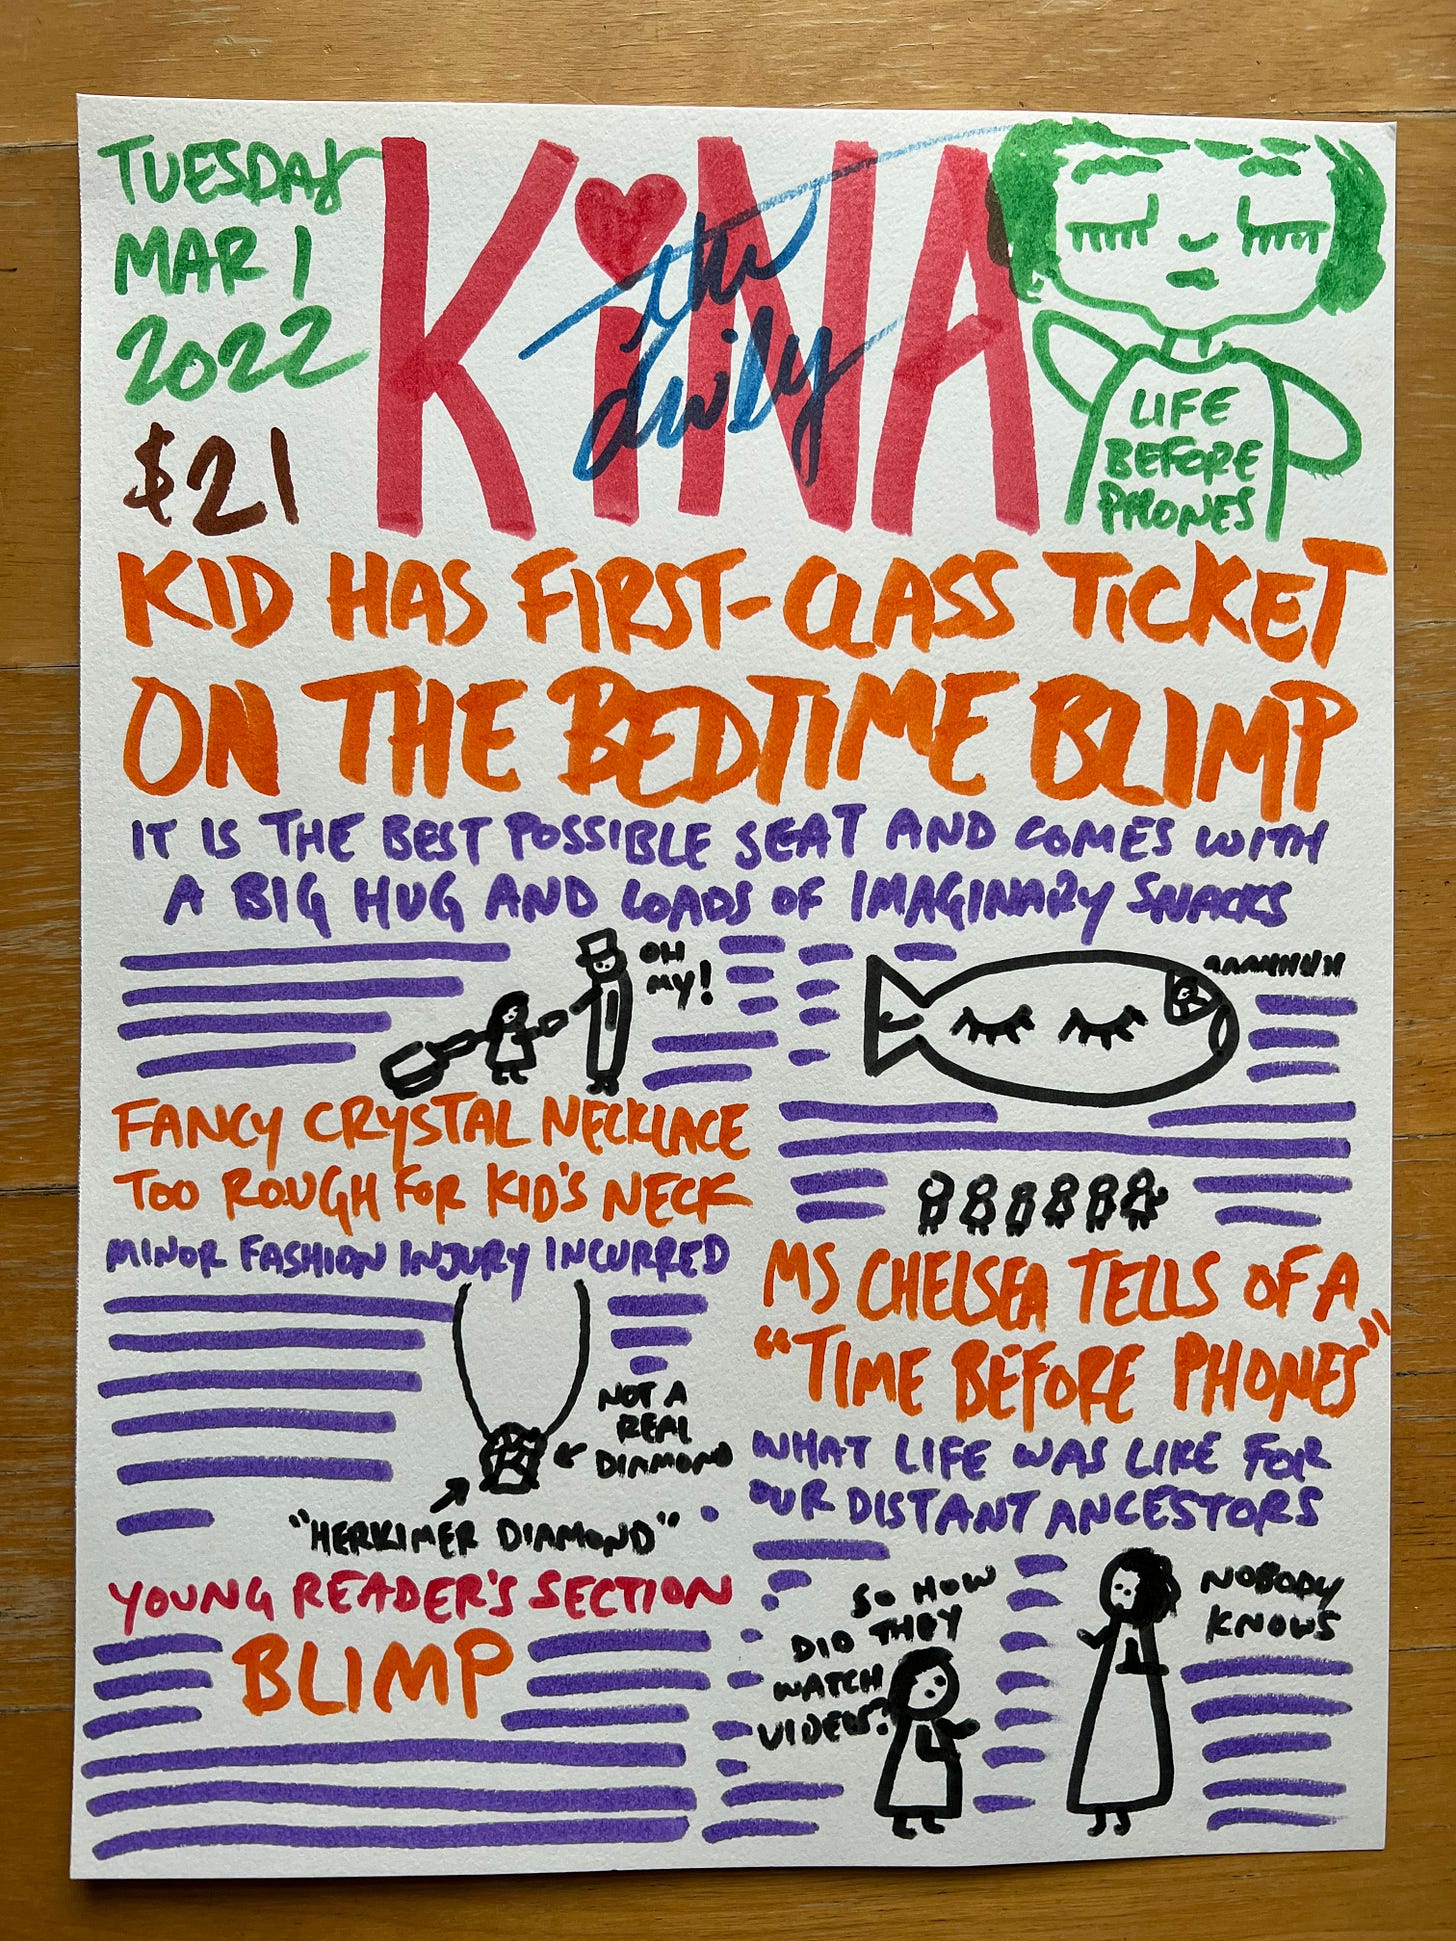 TUESDAY
MAR 1
2022
$21
the
daily
KiNA
LIFE
BEFORE
PHONES
KID HAS FIRST-CLASS TICKET
ON THE BEDTIME BLIMP
IT IS THE BEST POSSIBLE SEAT AND COMES WITH
A BIG HUG AND LOADS OF IMAGINARY SNACKS
OH
MY!
AAAHHHHH
FANCY CRYSTAL NECKLACE
TOO ROUGH FOR KID'S NECK
MINOR FASHION INJURY INCURRED
NOT A
REAL
DIAMOND
"HERKIMER DIAMOND"
YOUNG READER'S SECTION
BLIMP
MS CHELSEA TELLS OF A
"TIME BEFORE PHONES"
WHAT LIFE WAS LIKE FOR
OUR DISTANT ANCESTORS
SO HOW
DID THEY
WATCH
VIDEOS?
NOBODY
KNOWS